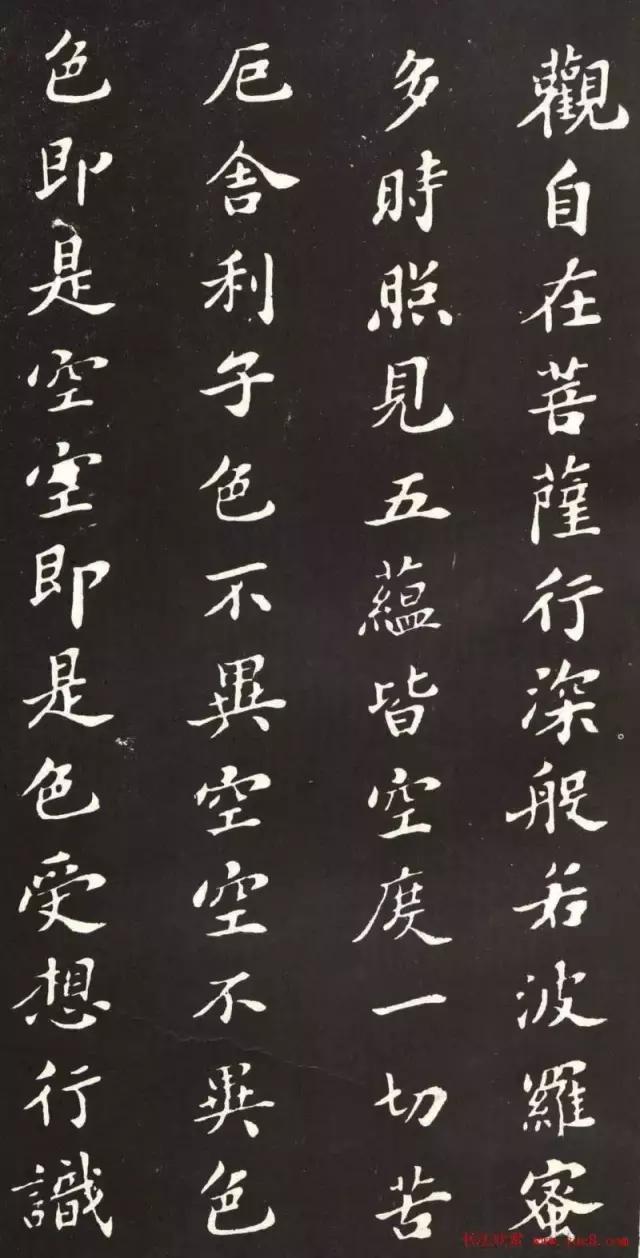 觀自在菩薩行深般若波羅蜜
多時照見五蘊皆空度一切苦
厄舍利子色不異空空不異色
色即是空空即是色受想行識
书法欣赏 www.yac8.com